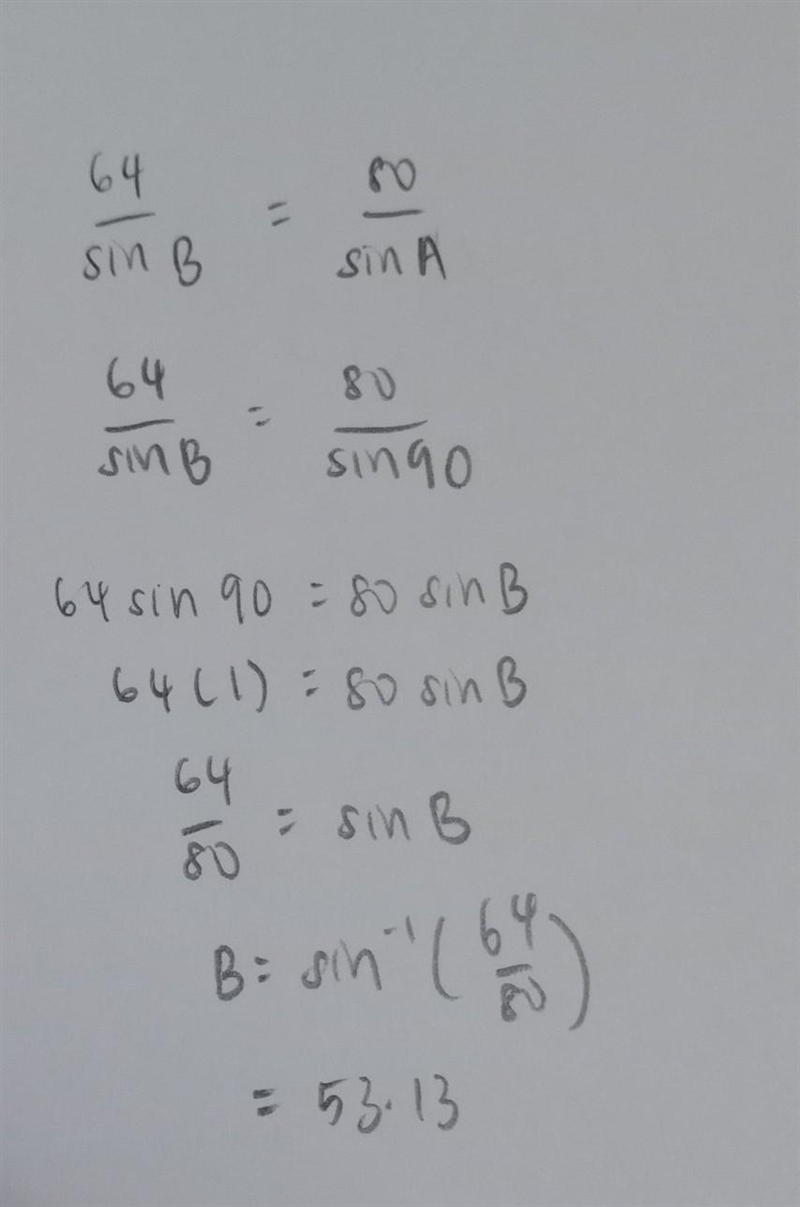 64/sin B = 80/sin A
64/sin B = 80/sin 90
64 sin 90 = 80 sin B
64 (1) = 80 sin B
64/80 = sin B
B = sin⁻¹ (64/80)
= 53.13